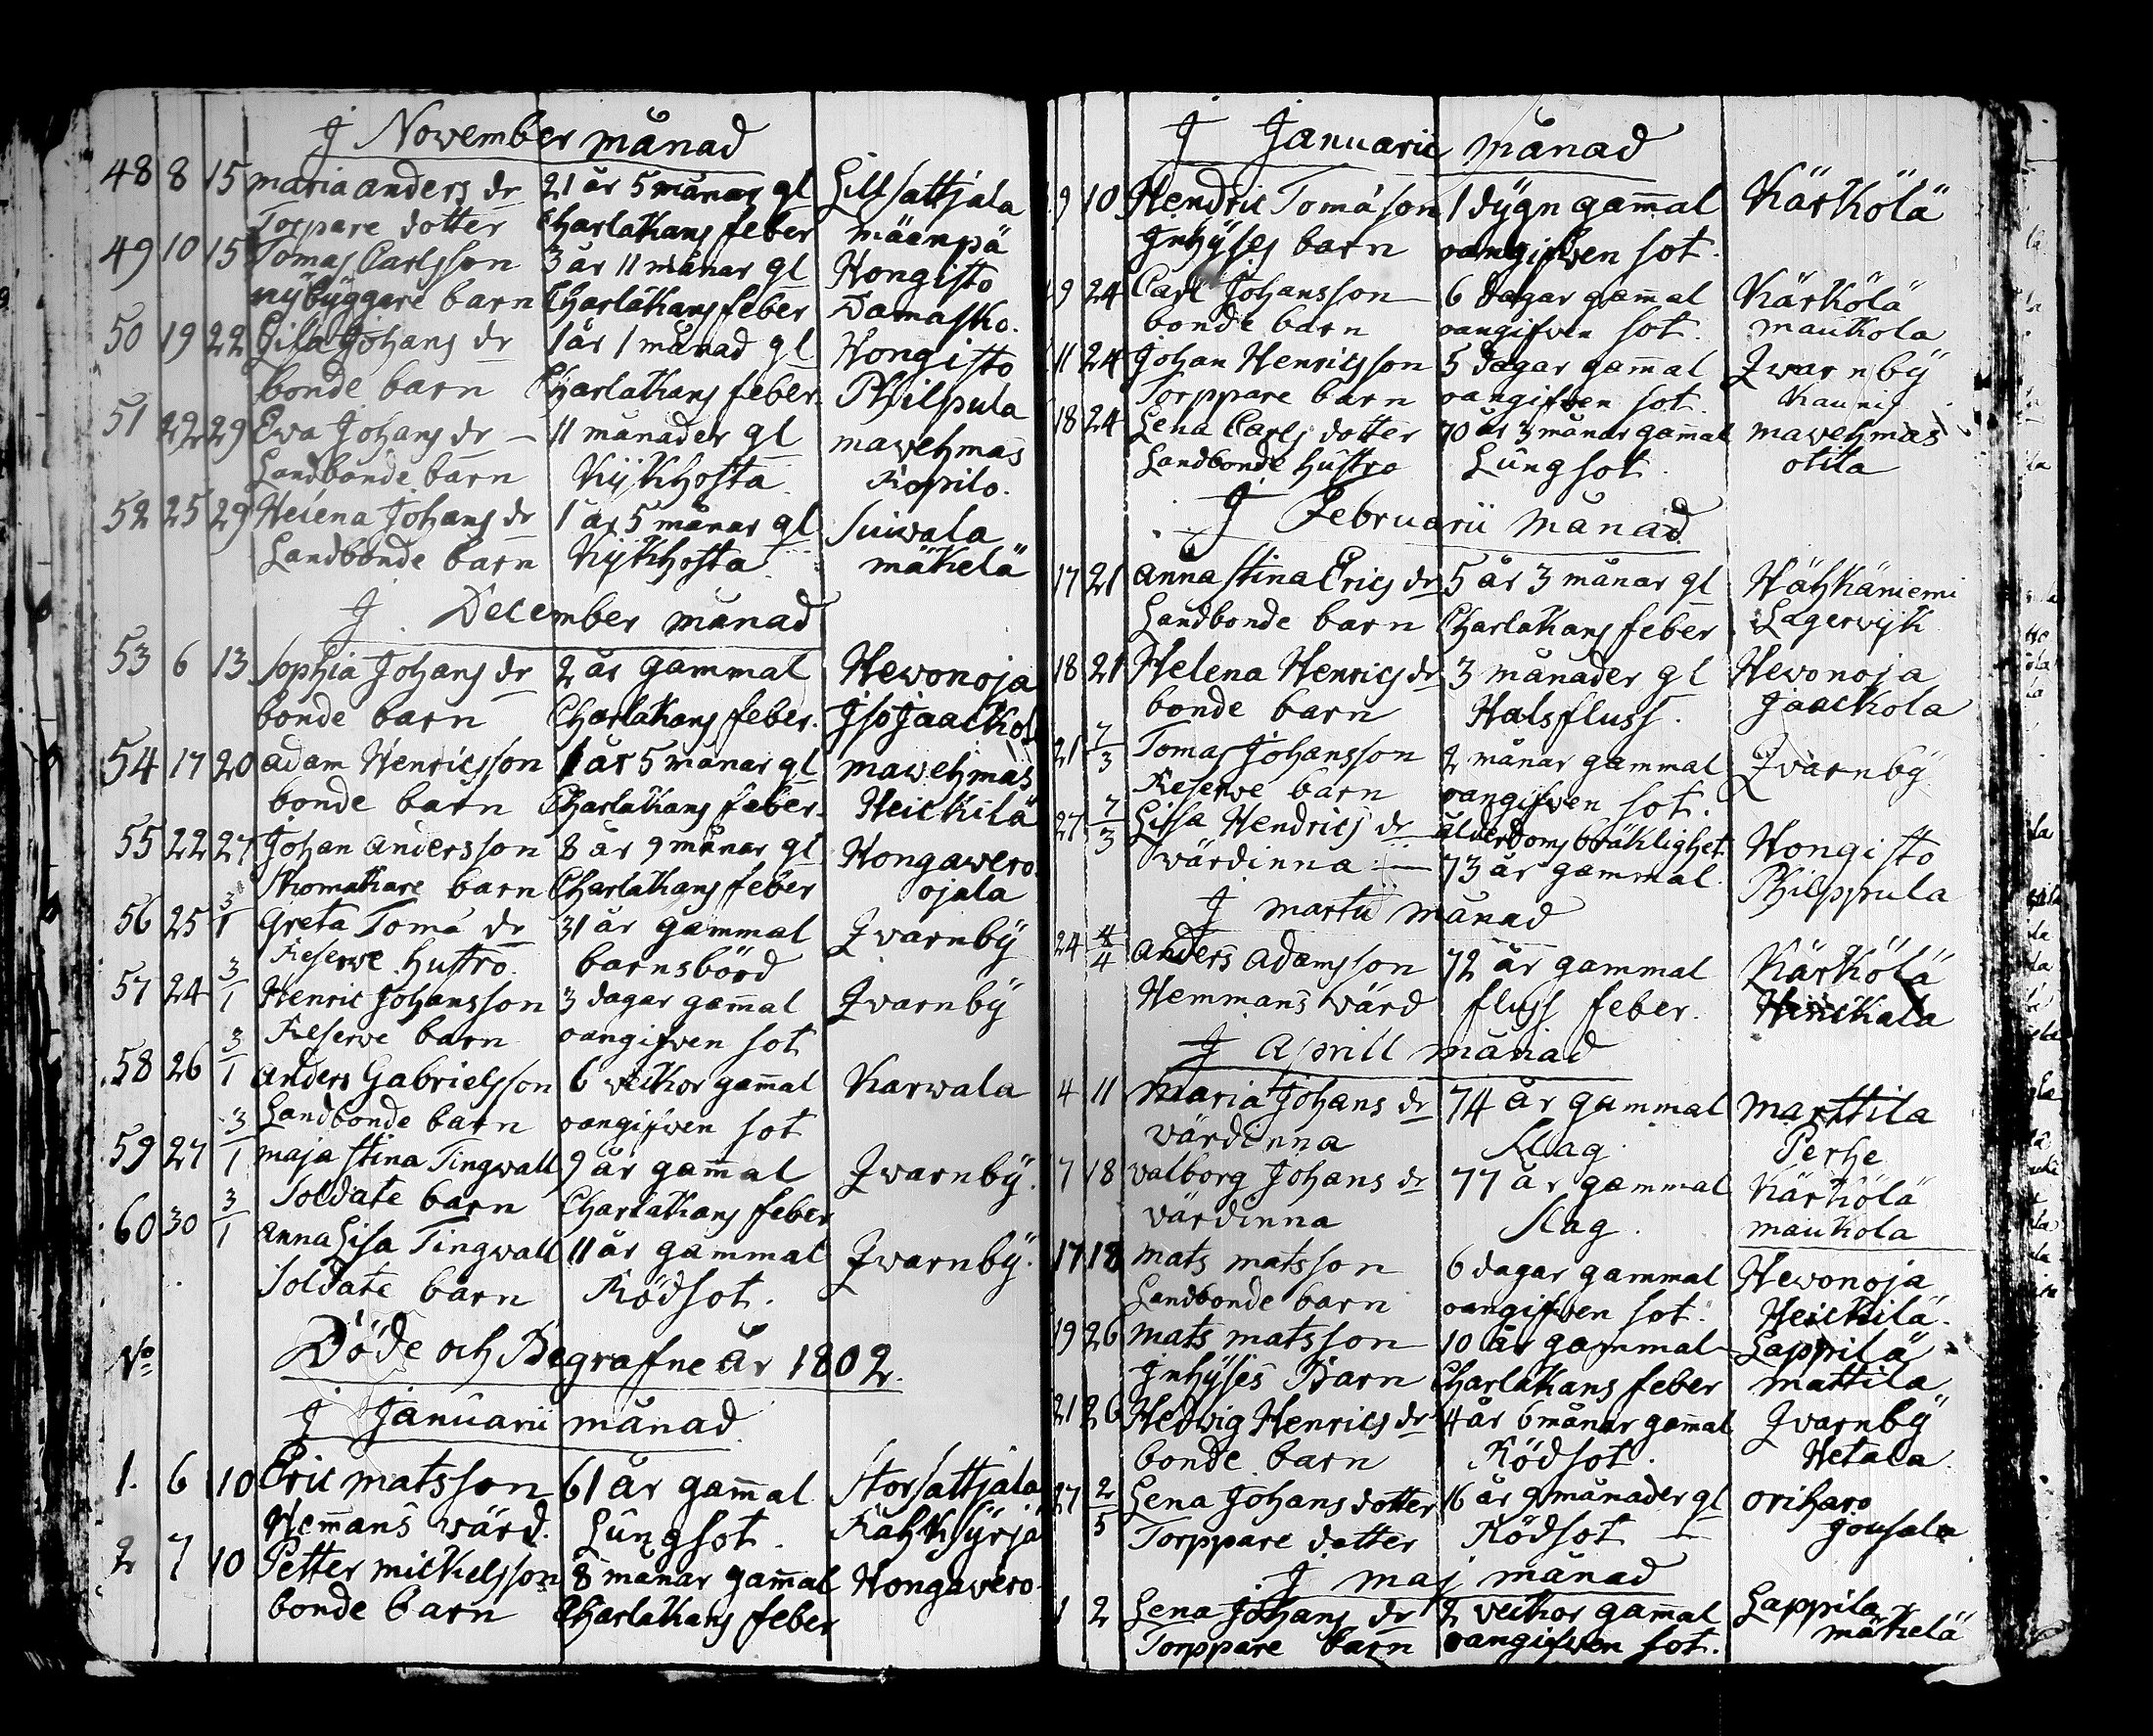 J November månad
48 8 15 Maria Anders dr 21 år 5 månar gl Lillsattjala
Torpare dotter Charlakans feber mäenpä
49 10 15 Tomas Carlsson 3 år 11 månar gl Hongisto
nybyggare barn Charlakans feber Damasko.
50 19 22 Johans dr 1 år 1 månad gl Hongisto
bonde barn Charlakans feber. Philpula
51 22 29 Ewa Johans dr — 11 månader gl mawehmas
Landbonde barn Kijkhosta
52 25 29 Helena Johans dr 1 år 5 månar gl Suiwala
Landbonde barn Kijkhosta mäkelä
J December månad
53 6 13 Sophia Johans dr 2 år gammal Hewonoja
bonde barn Charlakans feber. Isojaackol
54 17 20 Adam Henricsson 1 år 5 månar gl mawehmas
bonde barn Charlakans feber. Heickilä
55 22 27 Johan Andersson 8 år 9 månar gl Hongawero.
Skomakare barn Charlakans feber ojala
56 25 3/1 Greta Toma dr 31 år gammal Qvarnbÿ
Reserwe hustro. barnsbörd
57 24 3/1 Henric Johansson 3 dagar gam̄al Qvarnbÿ
Reserwe barn oangifwen sot
58 26 3/1 Anders Gabrielsson 6 weckor gam̄al Karwala
Landbonde barn oangifwen sot
59 27 3/1 Maja Stina Tingwall 9 år gam̄al Qvarnbÿ.
Soldate barn Charlakans feber
60 30 3/1 Anna Lisa Tingwall 11 år gammal Qvarnbÿ.
Soldate barn Rödsot.
No Döde och Begrafne år 1802.
J Januarii månad
1. 6 10 Eric Matsson 61 år gam̄al Storsattjala
Hem̄ans wärd. Lungsot. Rahksyrjä
2 7 10 Petter Mickelsson 8 månar gam̄al Hongawero
bonde barn Charlakans feber
J Januarii månad
9 10 Hendric Tomason 1 dygn gam̄al Kärkölä
Inhyses barn oangifwen sot.
9 24 Carl Johansson — 6 dagar gam̄al Kärkölä
bonde barn oangifwen sot. maukola
11 24 Johan Henricsson 5 dagar gam̄al Qwarnbÿ
Torppare barn oangifwen sot. Kauni
18 24 Lena Carls dotter 70 år 3 månar gam̄al mawehmas
Landbonde hustro Lungsot. otila
J Februarii månad
17 21 Anna Stina Erics dr 5 år 3 månar gl Hähkäniemi
Landbonde barn Charlakans feber Lagerwijk
18 21 Helena Henrics dr 3 månader gl Hewonoja
bonde barn Halsfluss. Jaackola
21 7/3 Tomas Johansson 2 månar gammal Qvarnbÿ
Reserwe barn oangifwen sot.
27 7/3 Lisa Hendrics dr ålderdoms bräklighet Hongisto
wärdinna — 73 år gammal. Philppula
J Martii månad
24 4/4 Anders Adamsson 72 år gammal Kärkölä
Hemmans wärd fluss feber.
J Aprill månad
4 11 Maria Johans dr 74 år gammal Marttila
wärdinna Slag Perhe
7 18 Walborg Johans dr 77 år gammal Kärkölä
wärdinna Slag. maukola
17 18 Mats Matsson 6 dagar gammal Hewonoja
Landbonde barn oangifwen sot. Heickilä.
19 26 Mats Matsson 10 år gammal Lappilä
Inhyses Barn Charlakans feber mattila
21 26 Hedwig Henrics dr 4 år 6 månar gam̄al Qvarnbÿ
bonde barn Rödsot. Hetala.
27 2/5 Lena Johans dotter 16 år 9 månader gl oriharo
Torppare dotter Rödsot — Jousala
J Maj månad
1 2 Lena Johans dr 2 weckor gam̄al Lappila
Torppare barn oangifwen sot. mäkelä